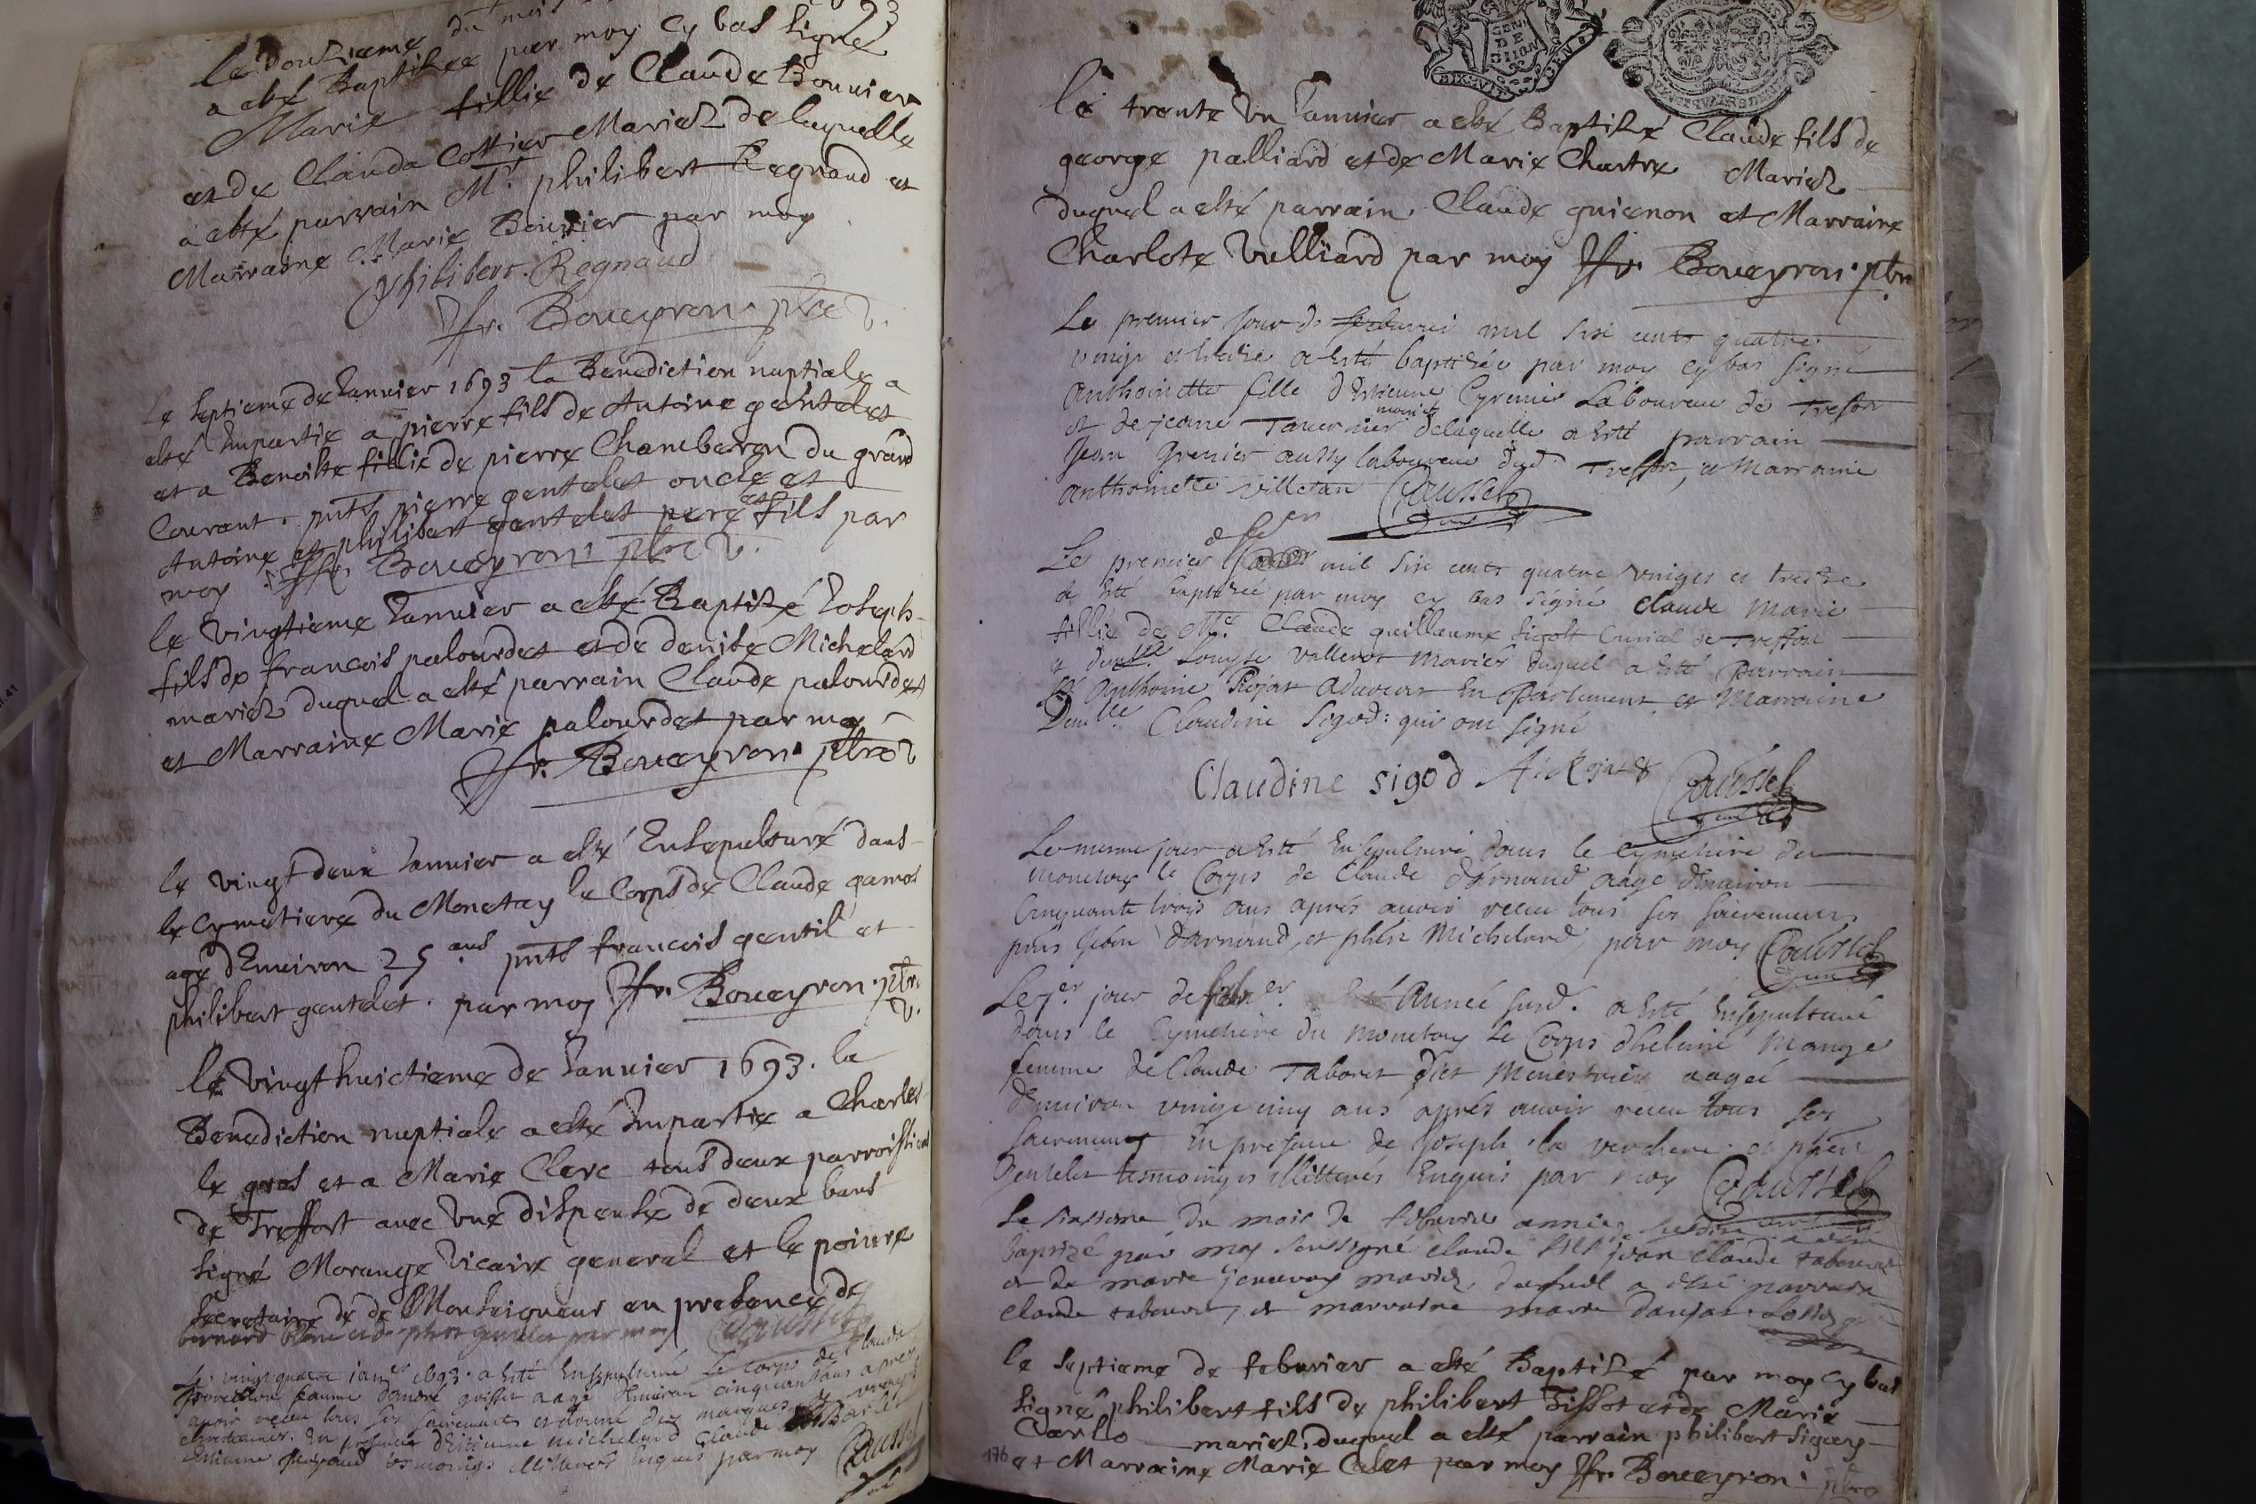 93
le douzieme du mois
a esté Baptisee par moy cy bas signé
Marie fillie de Claude Bouvier
et de Clauda Cottier Mariez de laquelle
a esté parrain Mr. philibert Regnaud et
Marraine Marie Bouvier par moy
philibert Regnaud
ffr. Boueyron ptre v.
Le septieme de Januier 1693 la Benediction nuptiale a
esté Impartie a pierre fils de Antoine gentelet
et a Benoiste fillie de pierre Chambaron du grand
Courant. pnts pierre gentelet oncle et
Antoine et philibert gentelet pere et fils par
moy ffr. Boueyron ptre v.
le vingtieme Januier a esté Baptisé Joseph
fils de francois palourdet et de denise Michelard
mariez duquel a esté parrain Claude palourdet
et Marraine Marie palourdet par moy
ffr. Boueyron ptre v
le vingt deux Januier a esté Ensepulturé dans
le Cymetiere du Monetay le Corps de Claude gamot
agé d'Enuiron 25 ans pnts francois gentil et
philibert gentelet. par moy ffr. Boueyron ptre
v.
le Vingt huictieme de Januier 1693. la
Benediction nuptiale a esté Impartie a Charles
le gros et a Marie Clerc tous deux parroissiens
de Treffort auec vne dispense de deux bans
signé Morange Vicaire general et le poivre
secretaire de de Monseigneur en presence de
bernard gentelet par moy
Le vingt quatre 1693. a esté Ensepulturé Le Corps de Clauda
femme aagé d'Enuiron cinquante ans apres
auoir receu tous ses sacremens et donné des marques de vraye
En presence d'Estienne Michelard Claude
Estienne tesmoings illitterés Enquis par moy
le trente vn Januier a esté Baptisé Claude fils de
george palliard et de Marie Chartre Mariez
duquel a esté parrain Claude guienon et Marraine
Charlote Vulliard par moy ffr. Boueyron ptre
Le premier jour de feburier mil six cents quatre
vingt et treize a esté baptizée par moy cy bas signé
Anthoinette fille d'Estienne Cyrenier Laboureur de Treffort
et de jeane Tauernier mariés de laquelle a esté parrain
Jean grenier aussy laboureur dud. Treffort, et Marraine
anthoinette villetan Coussel
Le premier de feer mil six cents quatre vingts et treize
a esté baptizée par moy cy bas signé Claude Marie
fillie de Mre. Claude guillaume Sigod Curial de Treffort
et demlle Louyse Valleros mariés duquel a esté Parrain
Sr Anthoine Rojat Aduocat En Parlement et Marraine
Demlle Claudine Sigod: qui ont signé
Claudine sigod A. Rojat Coussel
Le mesme jour a esté Ensepulturé dans le cymetiere du
monetay le Corps de Claude d'arnaud aagé d'enuiron
Cinquante trois ans aprés auoir receu tous ses sacremens
pnts Jean d'arnaud, et phert Michelard par moy Coussel
Le 7er jour de febuer Année susd. a esté Ensepulturé
dans le Cymetiere du Monetay le Corps d'heleine Mange
femme de Claude Taboret dict Menestrier aagée
d'Enuiron vingt cinq ans aprés auoir receu tous ses
sacremens En presence de Joseph la verchere et phert
Gentelet tesmoings illitterés Enquis par moy Coussel
Le sixiesme du mois de feburier année
baptizé par moy soussigné claude fils jean claude tabouret
et de marie jeneuoy mariez, duquel a esté parrain
claude tabouret, et marraine marie danjat.
le septieme de feburier a esté Baptisé par moy cy bas
signé philibert fils de philibert Tissot et de Marie
Carlo mariez. duquel a esté parrain philibert sigaey
176 et Marraine Marie Calet par moy ffr. Boueyron. ptre